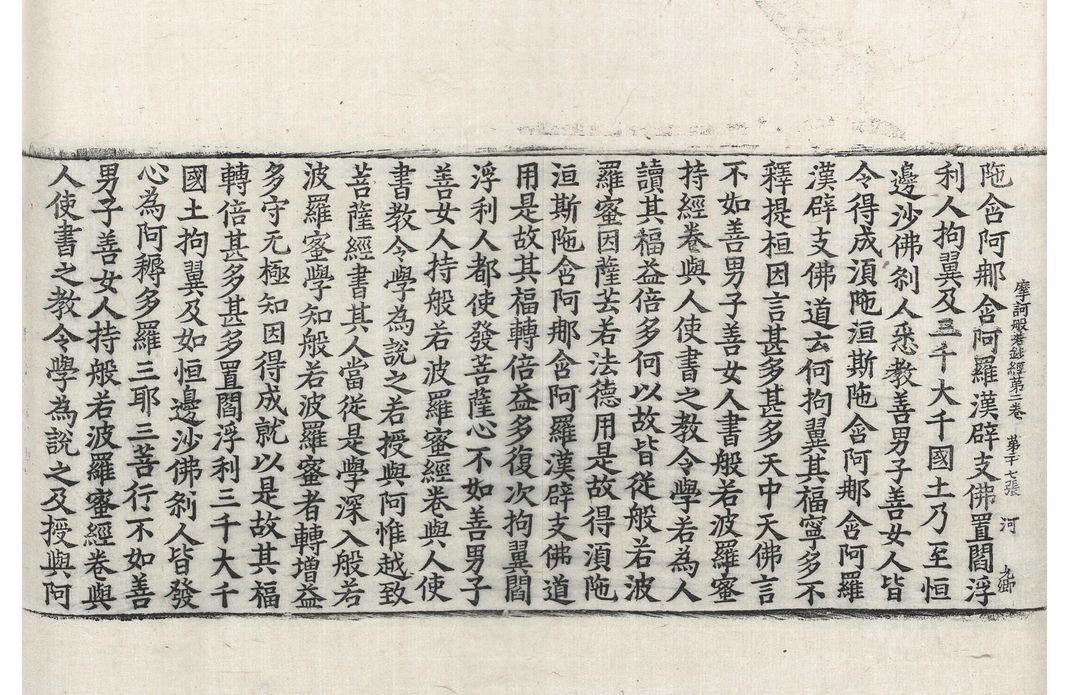 摩訶般若鈔經第二卷 第十七張 河
陁含阿那含阿羅漢辟支佛置閻浮
利人拘翼及三千大千國土乃至恒
邊沙佛剎人悉教善男子善女人皆
令得成湏陁洹斯陁含阿那含阿羅
漢辟支佛道云何拘翼其福寧多不
釋提桓因言甚多甚多天中天佛言
不如善男子善女人書般若波羅蜜
持經卷與人使書之教令學若為人
讀其福益倍多何以故皆從般若波
羅蜜因薩芸若法德用是故得湏陁
洹斯陁含阿那含阿羅漢辟支佛道
用是故其福轉倍益多復次拘翼閻
浮利人都使發菩薩心不如善男子
善女人持般若波羅蜜經卷與人使
書教令學為說之若授與阿惟越致
菩薩經書其人當從是學深入般若
波羅蜜學知般若波羅蜜者轉增益
多守无極知因得成就以是故其福
轉倍甚多甚多置閻浮利三千大千
國土拘翼及如恒邊沙佛剎人皆發
心為阿耨多羅三耶三菩行不如善
男子善女人持般若波羅蜜經卷與
人使書之教令學為說之及授與阿